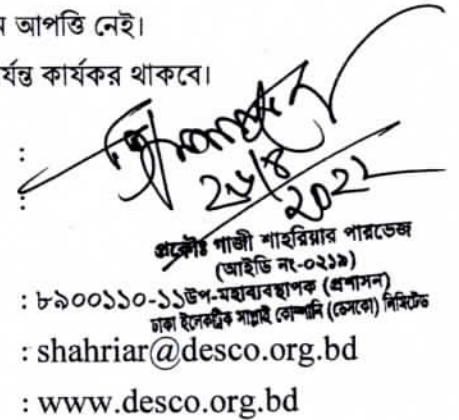 আপত্তি নেই।
র্যন্ত কার্যকর থাকবে।
:
:
২০২২
প্রকৌঃ গাজী শাহরিয়ার পারভেজ
(আইডি নং-০২১৯)
: ৮৯০০১১০-১১ উপ-মহাব্যবস্থাপক (প্রশাসন)
ঢাকা ইলেকট্রিক সাপ্লাই কোম্পানি (ডেসকো) লিমিটেড
: shahriar@desco.org.bd
: www.desco.org.bd